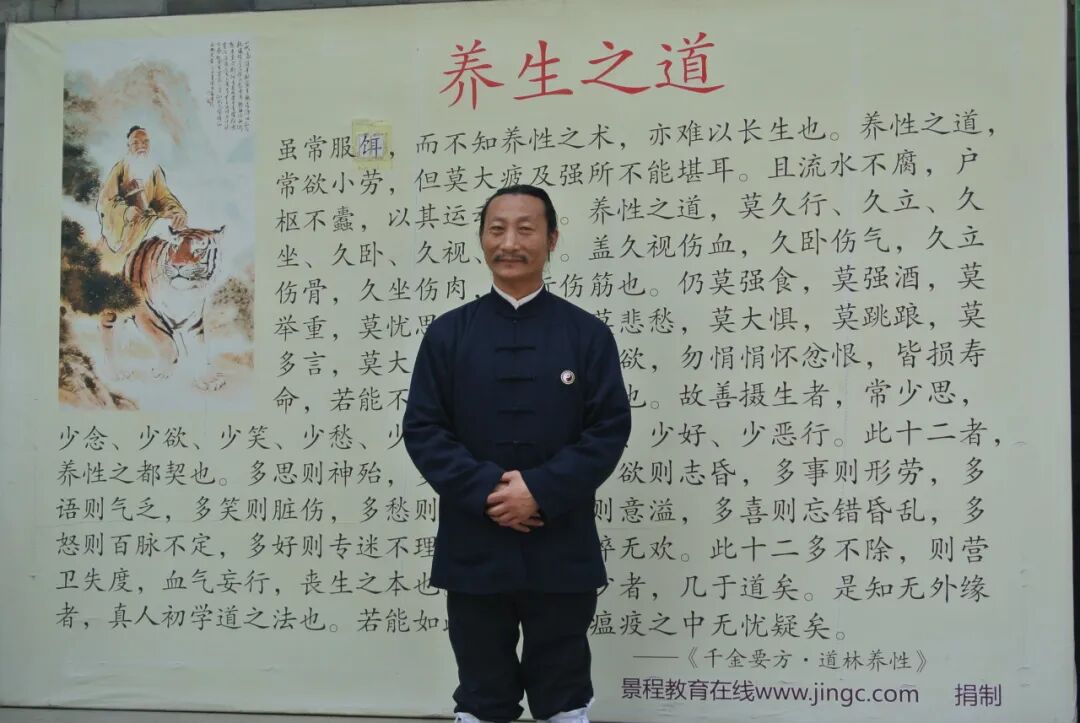 养生之道
虽常服饵，而不知养性之术，亦难以长生也。养性之道，
常欲小劳，但莫大疲及强所不能堪耳。且流水不腐，户
枢不蠹，以其运 。养性之道，莫久行、久立、久
坐、久卧、久视、 。盖久视伤血，久卧伤气，久立
伤骨，久坐伤肉， 伤筋也。仍莫强食，莫强酒，莫
举重，莫忧思 悲愁，莫大惧，莫跳踉，莫
多言，莫大 欲，勿悁悁怀忿恨，皆损寿
命，若能不 也。故善摄生者，常少思，
少念、少欲、少笑、少愁、少 、少好、少恶行。此十二者，
养性之都契也。多思则神殆， 欲则志昏，多事则形劳，多
语则气乏，多笑则脏伤，多愁则 则意溢，多喜则忘错昏乱，多
怒则百脉不定，多好则专迷不理 无欢。此十二多不除，则营
卫失度，血气妄行，丧生之本也 少者，几于道矣。是知无外缘
者，真人初学道之法也。若能如此 瘟疫之中无忧疑矣。
——《千金要方·道林养性》
景程教育在线www.jingc.com 捐制